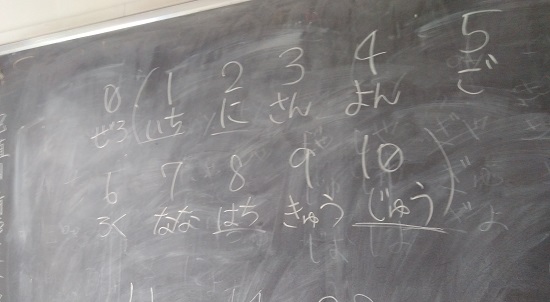 0 ( 1 2 3 4 5
ぜろ いち に さん よん ご
6 7 8 9 10 )
ろく なな はち きゅう じゅう